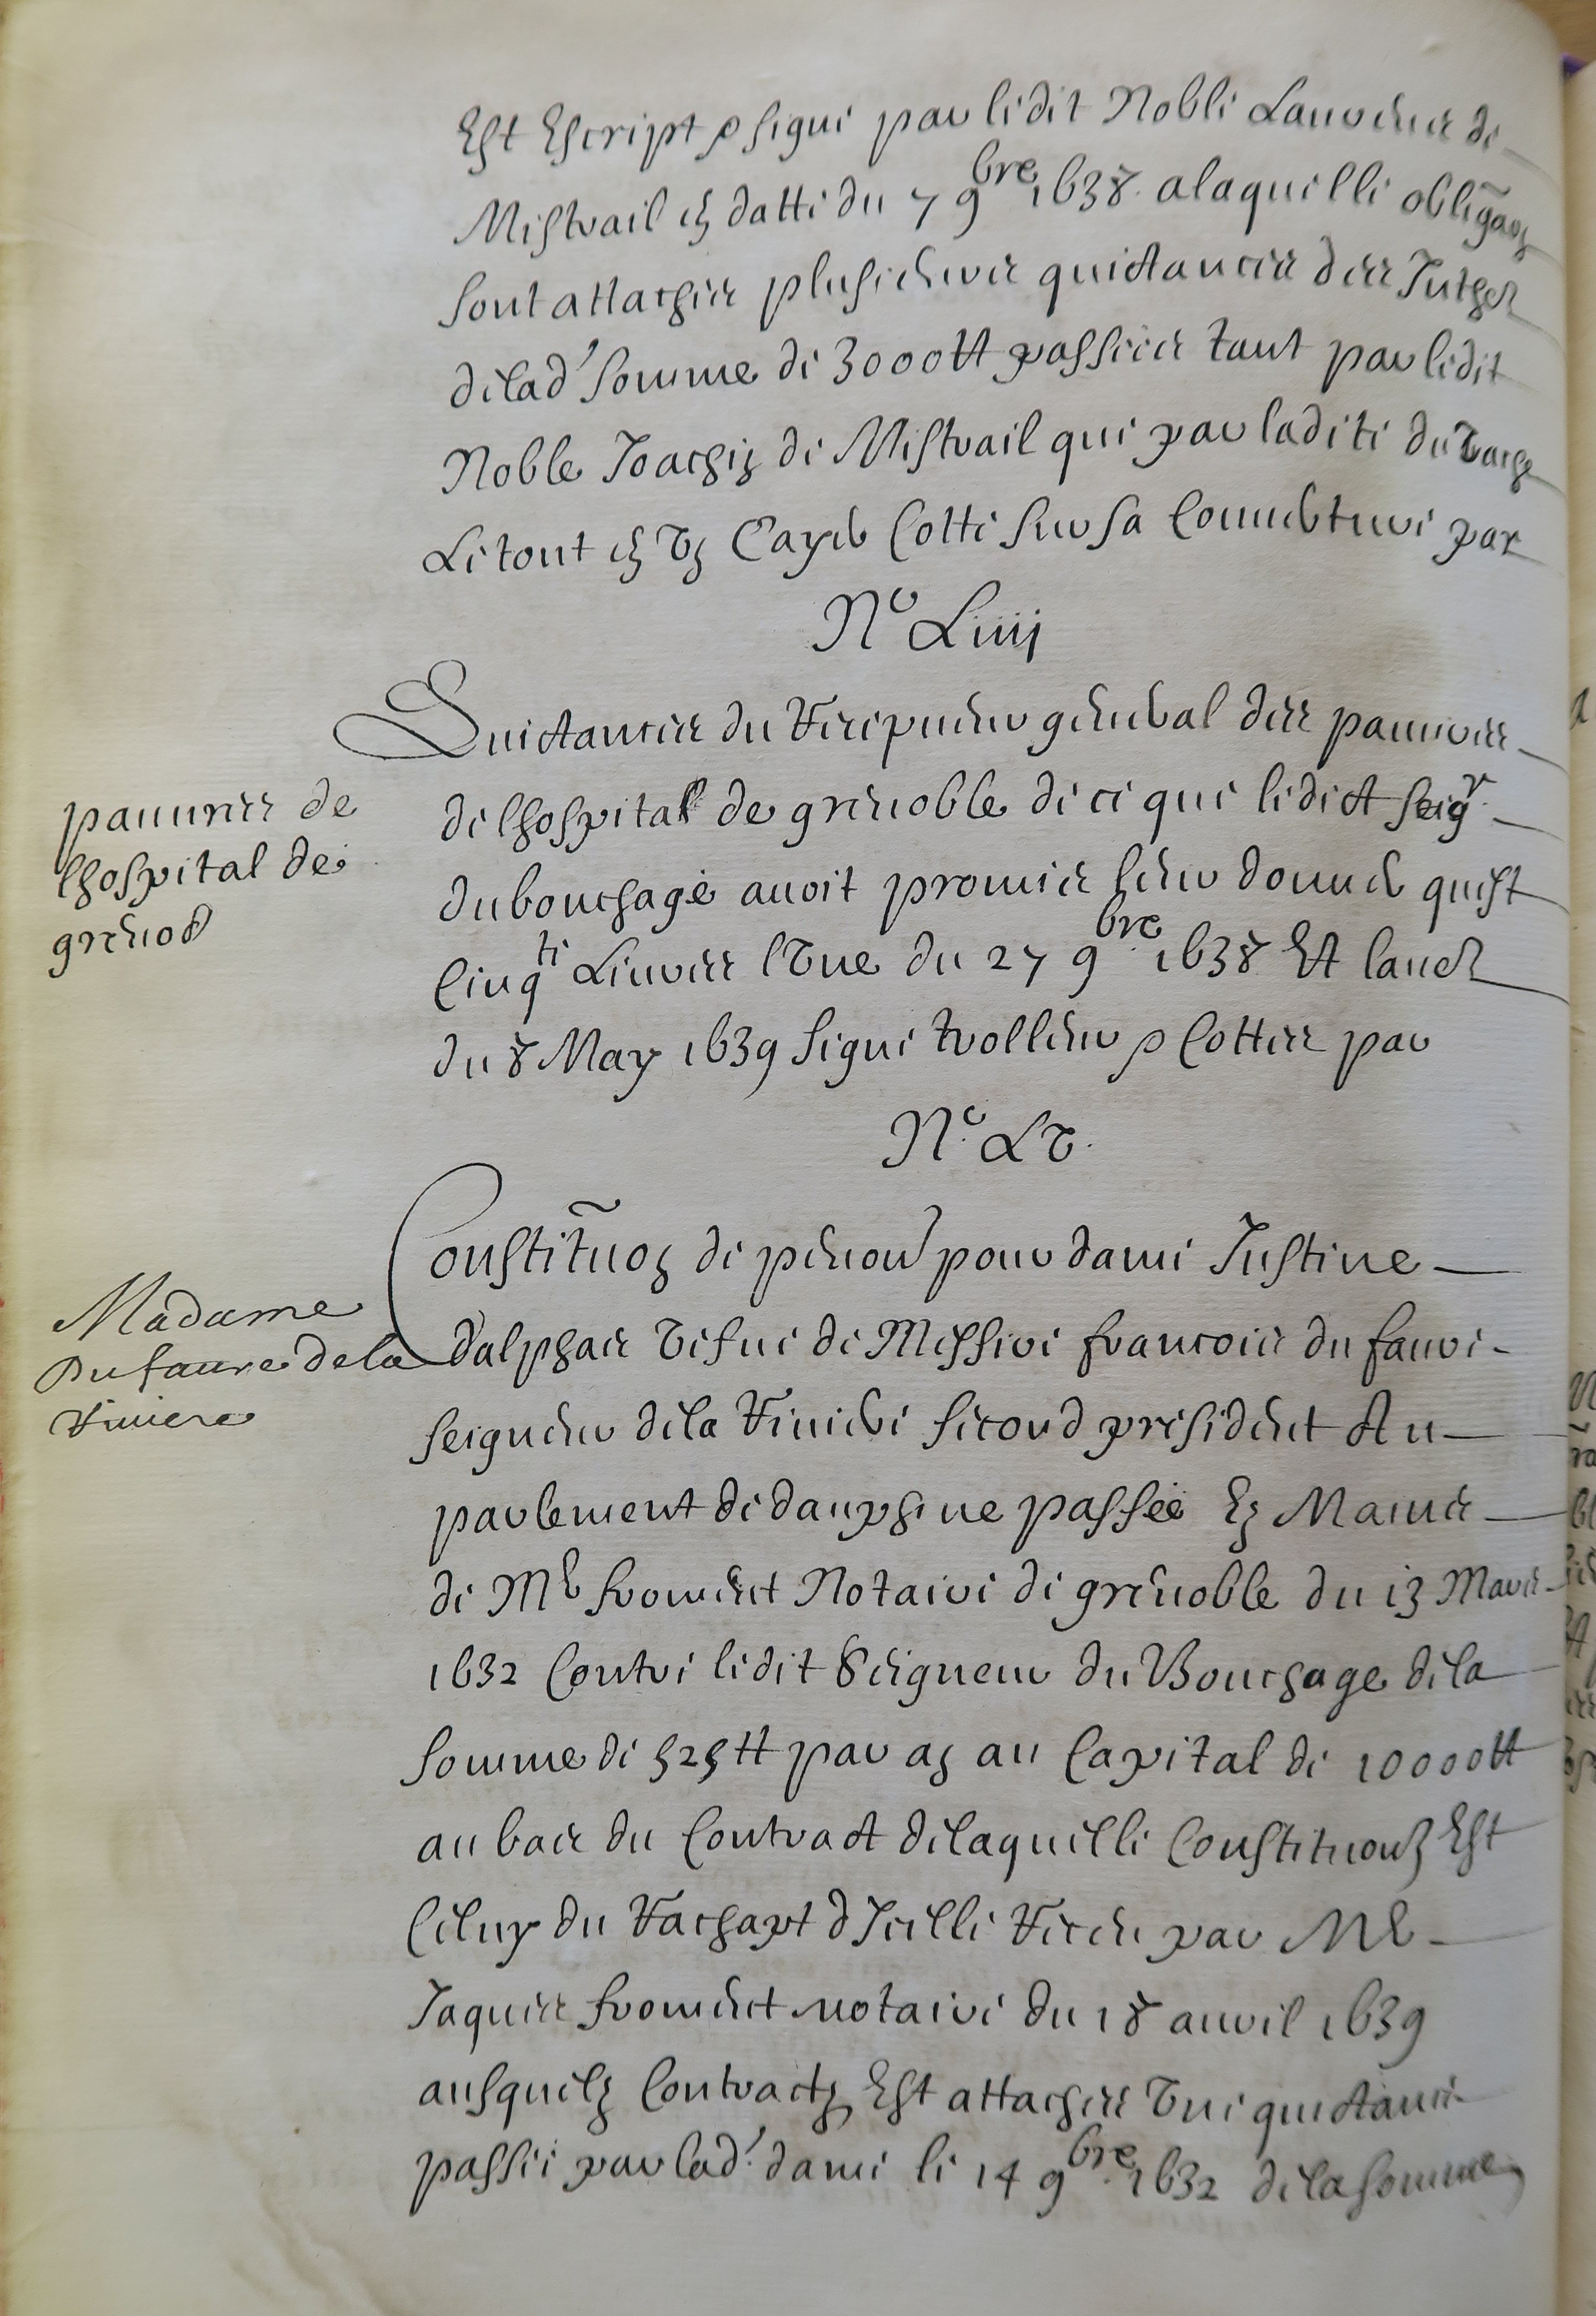 Est Escript & signé par ledit Noble Laurens de
Mistrail en datte du 7 9bre 1638 a laquelle obligaõn
sont attachés plusieurs quictances des Intherests
de lad' somme de 3000tt passées tant par ledit
Noble Joachin de Mistrail que par ladite du Vache
Le tout en Un Cayer Cotté sur sa Couuerture par
No Liiij
Quictances du Recepueur general des pauures
de lhospital de grenoble de ce que ledict seigr
du bouchage auoit promis leur donner quest
Cinqte Liures l'Vne du 27 9bre 1638 Et lautre
du 8 May 1639 signé trollieur & Cottées par
No LV.
pauures de
lhospital de
grenob
Constitũon de pension pour dame Justine
Dalphas Vefue de Messire francois du faure
seigneur de la Riuiere second president Au
parlement de dauphine passée En Mains
de Me froment Notaire de grenoble du 13 Mars
1632 Contre ledit Seigneur du Bouchage de la
somme de 525tt par an au Capital de 10000tt
au bas du Contract de laquelle Constituon Est
Celuy du Rachapt d'Icelle Receu par Me
Jaques froment notaire du 18 auril 1639
ausquels Contracts Est attachée Vne quictance
passée par lad' dame le 14 9bre 1632 de la somme
Madame
Dufaure de la
Riuiere